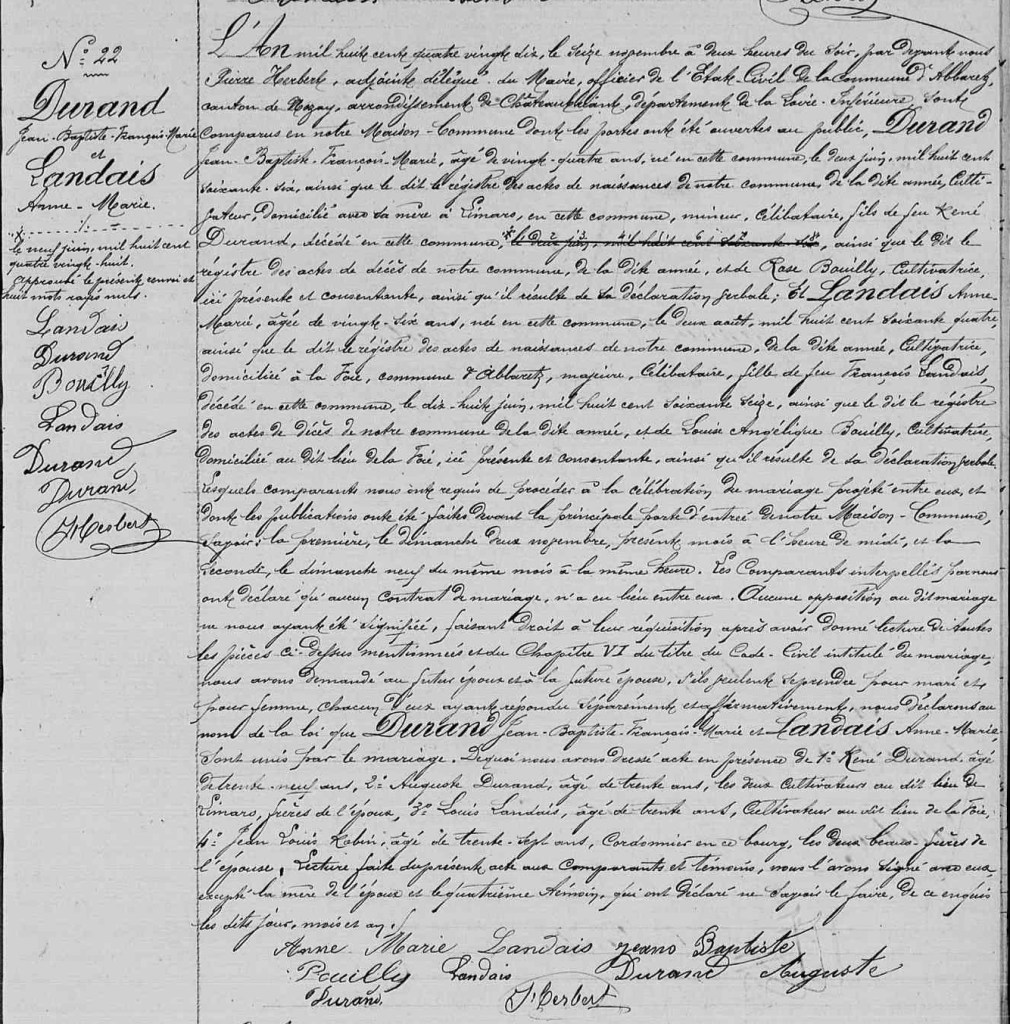 N° 22
Durand
Jean-Baptiste-François-Marie
et
Landais
Anne-Marie.
* le neuf juin, mil huit cent
quatre vingt-huit.
Approuvé le présent renvoi et
huit mots rayés nuls.
Landais
Durand
Bouilly
Landais
Durand
Durand
P Herbert
L'An mil huit cent quatre vingt dix, le seize novembre à deux heures du soir, par devant nous
Pierre Herbert, adjoint délégué du Maire, officier de l'Etat-Civil de la Commune d'Abbaretz
canton de Nozay, arrondissement de Châteaubriant, département de la Loire-Inférieure, sont
Comparus en notre Maison-Commune dont les portes ont été ouvertes au public, Durand
Jean-Baptiste-François-Marie, âgé de vingt-quatre ans, né en cette commune, le deux juin, mil huit cent
soixante-six, ainsi que le dit le régistre des actes de naissances de notre commune, de la dite année, Culti-
vateur, domicilié avec sa mère à Limaro, en cette commune, mineur, Célibataire, fils de feu René
Durand, décédé en cette commune, * le deux juin, mil huit cent soixante six, ainsi que le dit le
régistre des actes de décès de notre commune, de la dite année, et de Rose Bouilly, Cultivatrice,
ici présente et consentante, ainsi qu'il résulte de sa déclaration verbale; Et Landais Anne-
Marie, âgée de vingt-six ans, née en cette commune, le deux août, mil huit cent soixante quatre
ainsi que le dit le régistre des actes de naissances de notre commune, de la dite année, Cultivatrice,
domiciliée à la Foie, commune d'Abbaretz, majeure, Célibataire, fille de feu François Landais,
décédé en cette commune, le dix huit juin, mil huit cent soixante seize, ainsi que le dit le régistre
des actes de décès de notre commune de la dite année, et de Louise Angélique Bouilly, Cultivatrice,
domiciliée au dit lieu de la Foie, ici présente et consentante, ainsi qu'il résulte de sa déclaration verbale.
Lesquels comparants nous ont requis de procéder à la célébration du mariage projeté entre eux, et
dont les publications ont été faites devant la principale porte d'entrée de notre Maison-Commune,
Savoir: la première, le dimanche deux novembre, présent mois à l'heure de midi, et la
seconde, le dimanche neuf du même mois à la même heure. Les Comparants interpellés par nous
ont déclaré qu'aucun contrat de mariage, n'a eu lieu entre eux. Aucune opposition au dit mariage
ne nous ayant été signifiée, faisant droit à leur réquisition après avoir donné lecture de toutes
les pièces ci-dessus mentionnées et du Chapitre VI du titre du Code-Civil intitulé du mariage,
nous avons demandé au futur époux et à la future épouse, s'ils veulent se prendre pour mari et
pour femme, chacun d'eux ayant repondu séparément et affirmativement, nous déclarons au
nom de la loi que Durand Jean-Baptiste-François-Marie et Landais Anne-Marie
sont unis par le mariage. De quoi nous avons dressé acte en présence de 1° René Durand, âgé
de trente-neuf ans, 2° Auguste Durand, âgé de trente ans, les deux cultivateurs au dit lieu de
Limaro, frères de l'époux, 3° Louis Landais, âgé de trente ans, Cultivateur au dit lieu de la Foie,
4° Jean Louis Robin, âgé de trente-sept ans, Cordonnier en ce bourg, les deux beaux-frères de
l'épouse, Lecture faite du présent acte aux Comparants et témoins, nous l'avons signé avec eux,
excepté la mère de l'époux et le quatrième témoin, qui ont déclaré ne savoir le faire, de ce enquis
les dits jour, mois et an.
Anne Marie Landais Jean Baptiste
Bouilly Landais Durand Auguste
Durand P Herbert